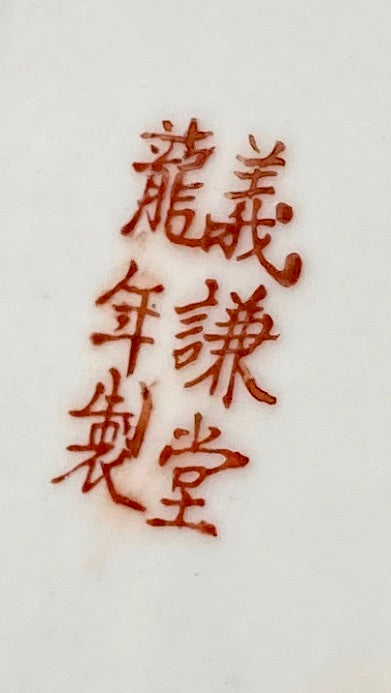 義謙堂
蘢年製